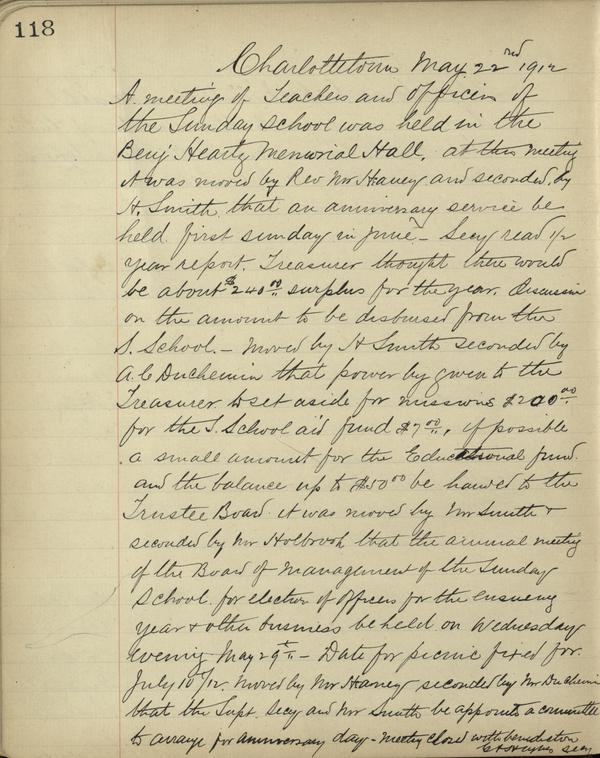 118
Charlottetown May 22nd 1912
A meeting of Teachers and officers of
the Sunday School was held in the
Benj Heartz Memorial Hall, at this meeting
it was moved by Rev Mr Haney and seconded by
H. Smith that an anniversary service be
held first sunday in June - Secy read 1/2
year report. Treasurer thought there would
be about $240.00 surplus for the year. Discussion
on the amount to be disbursed from the
S. School. - Moved by H Smith seconded by
A. E Duchemin that power by given to the
Treasurer to set aside for missions $200.00
for the S. School aid fund $7.00, if possible
a small amount for the Educational fund
and the balance up to $50.00 be handed to the
Trustee Board. it was moved by Mr Smith +
seconded by Mr Holbrook that the annual meeting
of the Board of Management of the Sunday
School for election of officers for the ensueng
year + other business be held on Wednesday
evening May 29th - Date for picnic fixed for
July 10th/12. Moved by Mr Haney seconded by Mr Duchemin
that the Supt. Secy and Mr Smith be appointed a committee
to arrange for anniversary day - Meeting closed with benediction
Secy